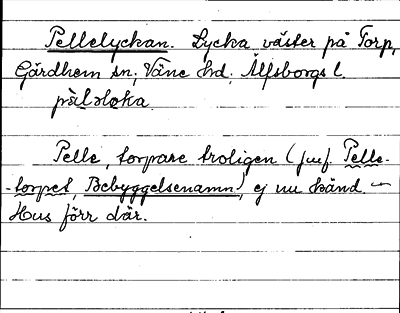 Pellelyckan. Lycka väster på Torp,
Gärdhem sn, Väne hd, Älfsborgs l.
Pelle, torpare troligen (jmf. Pelle-
-torpet, Bebyggelsenamn), ej nu känd. —
Hus förr där.